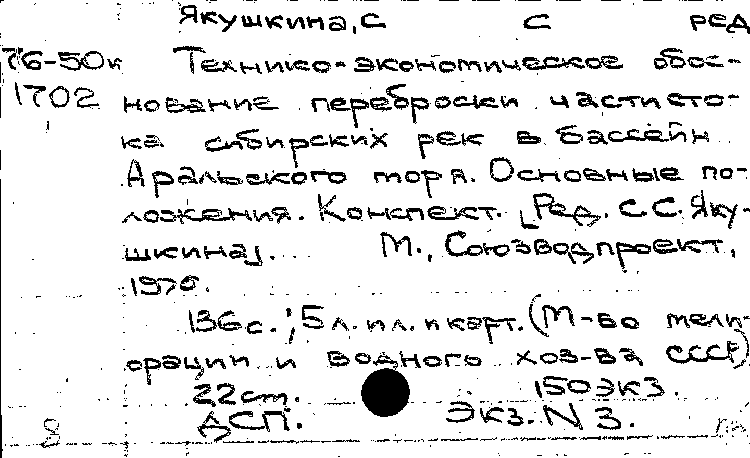 Якушкина, С С ред
76-50к Технико-экономическое обос-
1702 нование переброски части сто-
ка сибирских рек в бассейн
Аральского моря. Основные по-
ложения. Конспект. [Ред. С.С. Яку-
шкина]. М., Союзводпроект,
136 с.; 5 л. пл. и карт. (М-во мели-
орации и водного хоз-ва СССР)
22 см. 150 экз.
8 ДСП. Экз. N 3.